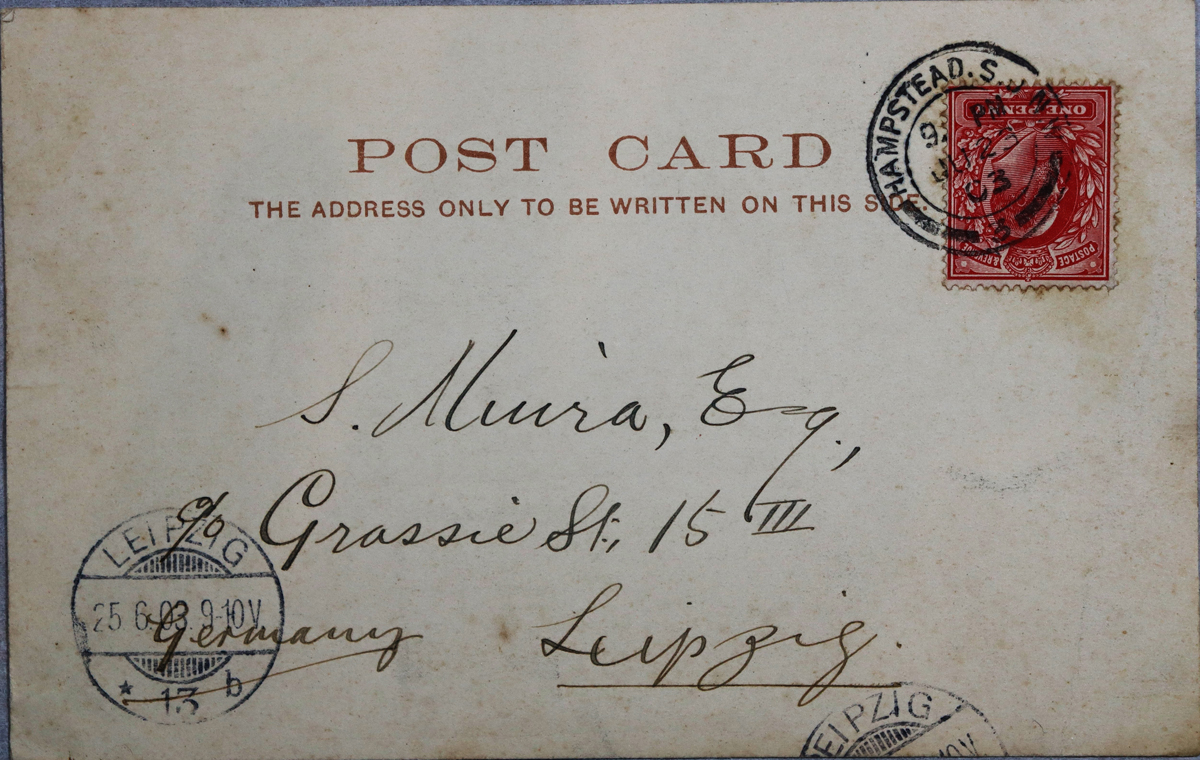 POST CARD
THE ADDRESS ONLY TO BE WRITTEN ON THIS SIDE.
HAMPSTEAD. S.O
PM
23
03
ONE PENNY
POSTAGE & REVENUE
S. Miura, Esq.,
c/o Grassie St., 15 III
Leipzig.
Germany
LEIPZIG
25 6 03 9-10V
* 13 b
LEIPZIG
10V